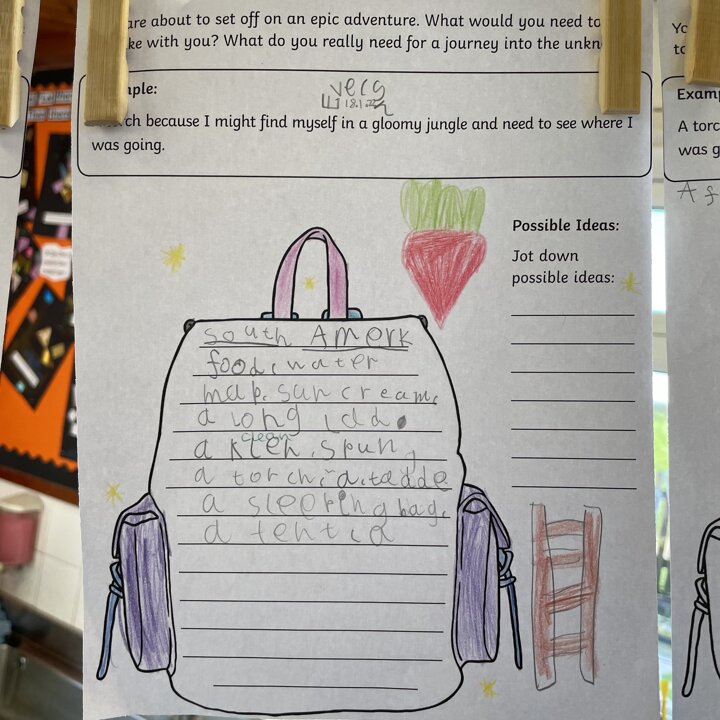 are about to set off on an epic adventure. What would you need to
ke with you? What do you really need for a journey into the unkn
ple:
18.1.22
ch because I might find myself in a gloomy jungle and need to see where I
was going.
Possible Ideas:
Jot down
possible ideas:
south Amerk
food, water
map, sun cream,
a long ldd
clean
a kleh, spun,
a torch, a, tedde
a sleeping bag,
a tent, a
Yo
to
Examp
A torc
was g
A f